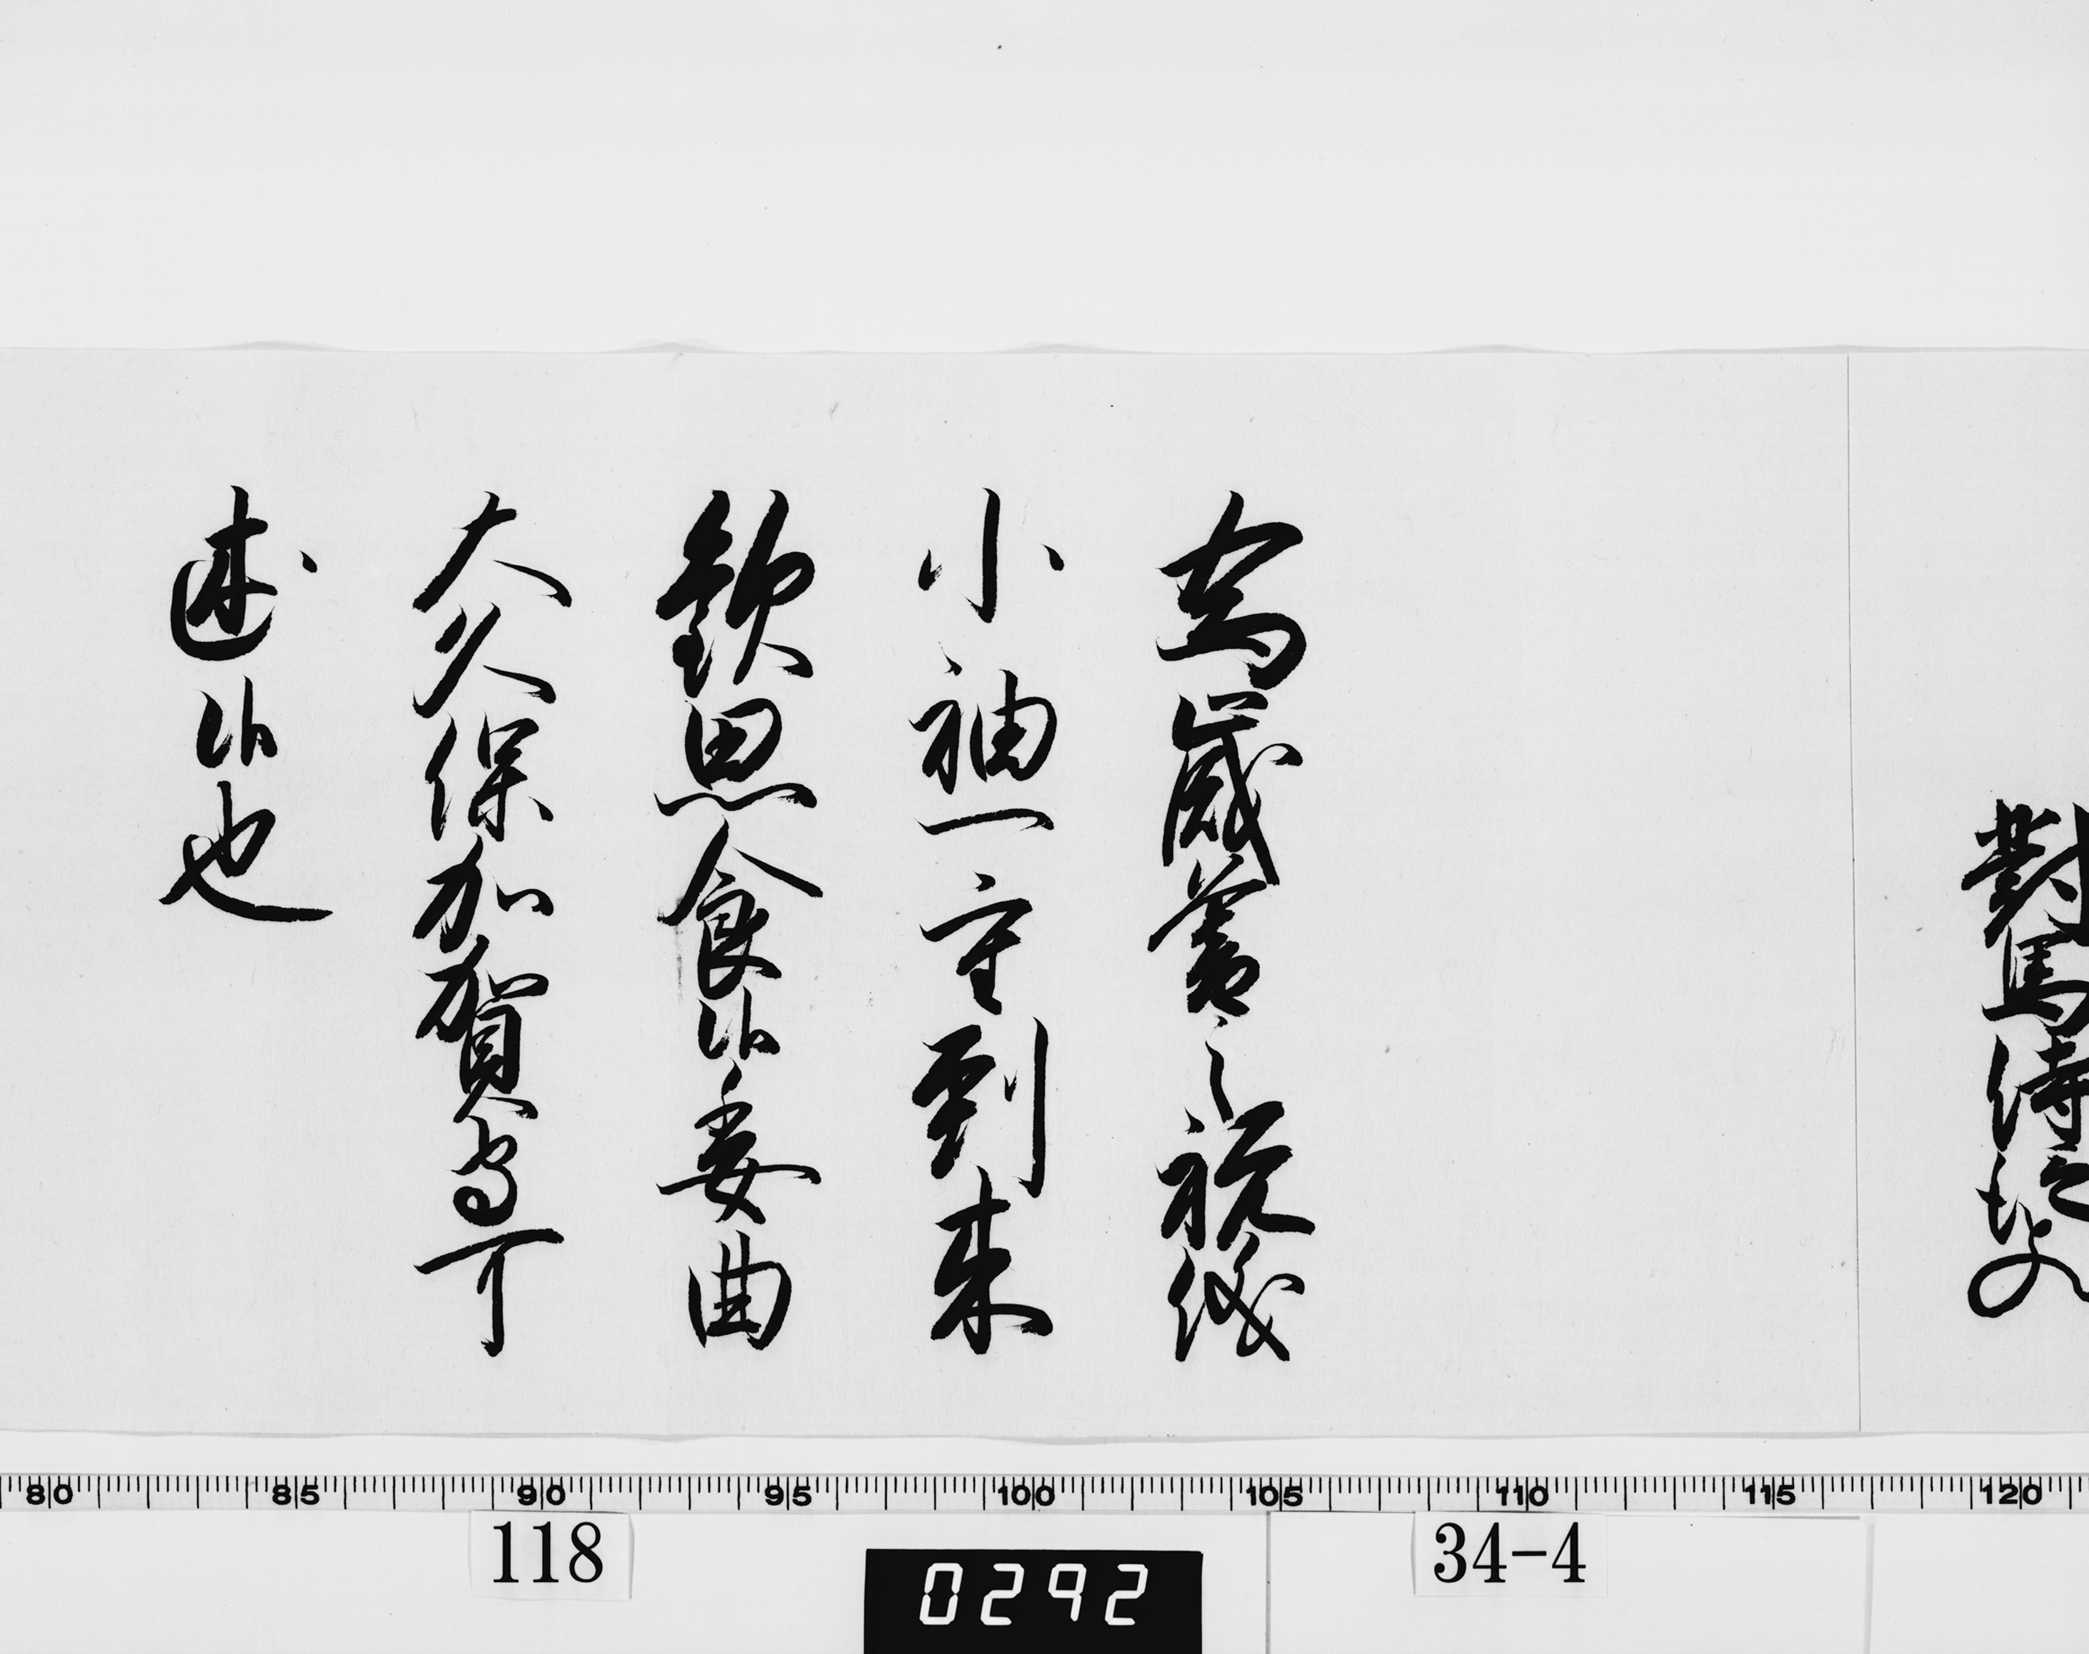 對馬侍従とのへ
為歳暮之祝儀
小袖一重到来
歓思食候委曲
大久保加賀守可
述候也
80 85 90 95 100 105 110 115 120
118
34-4
0292